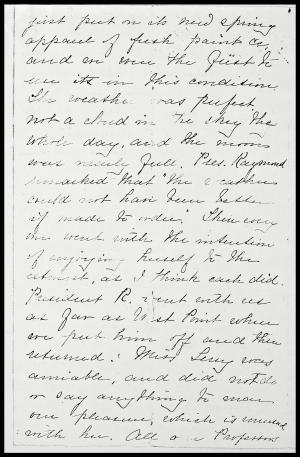 just put on its new spring
apparel of fresh paint &c,
and we were the first to
use it in this condition.
The weather was perfect
not a cloud in the sky the
whole day, and the moon
was nearly full. Pres. Raymond
remarked that "the weather
could not have been better
if made to order." Then every
one went with the intention
of enjoying herself to the
utmost, as I think each did.
President R. went with us
as far as West Point where
we put him off and then
returned. Miss Lyny was
amiable, and did not do
or say anything to mar
our pleasure, which is unusual
with her. All our Professors